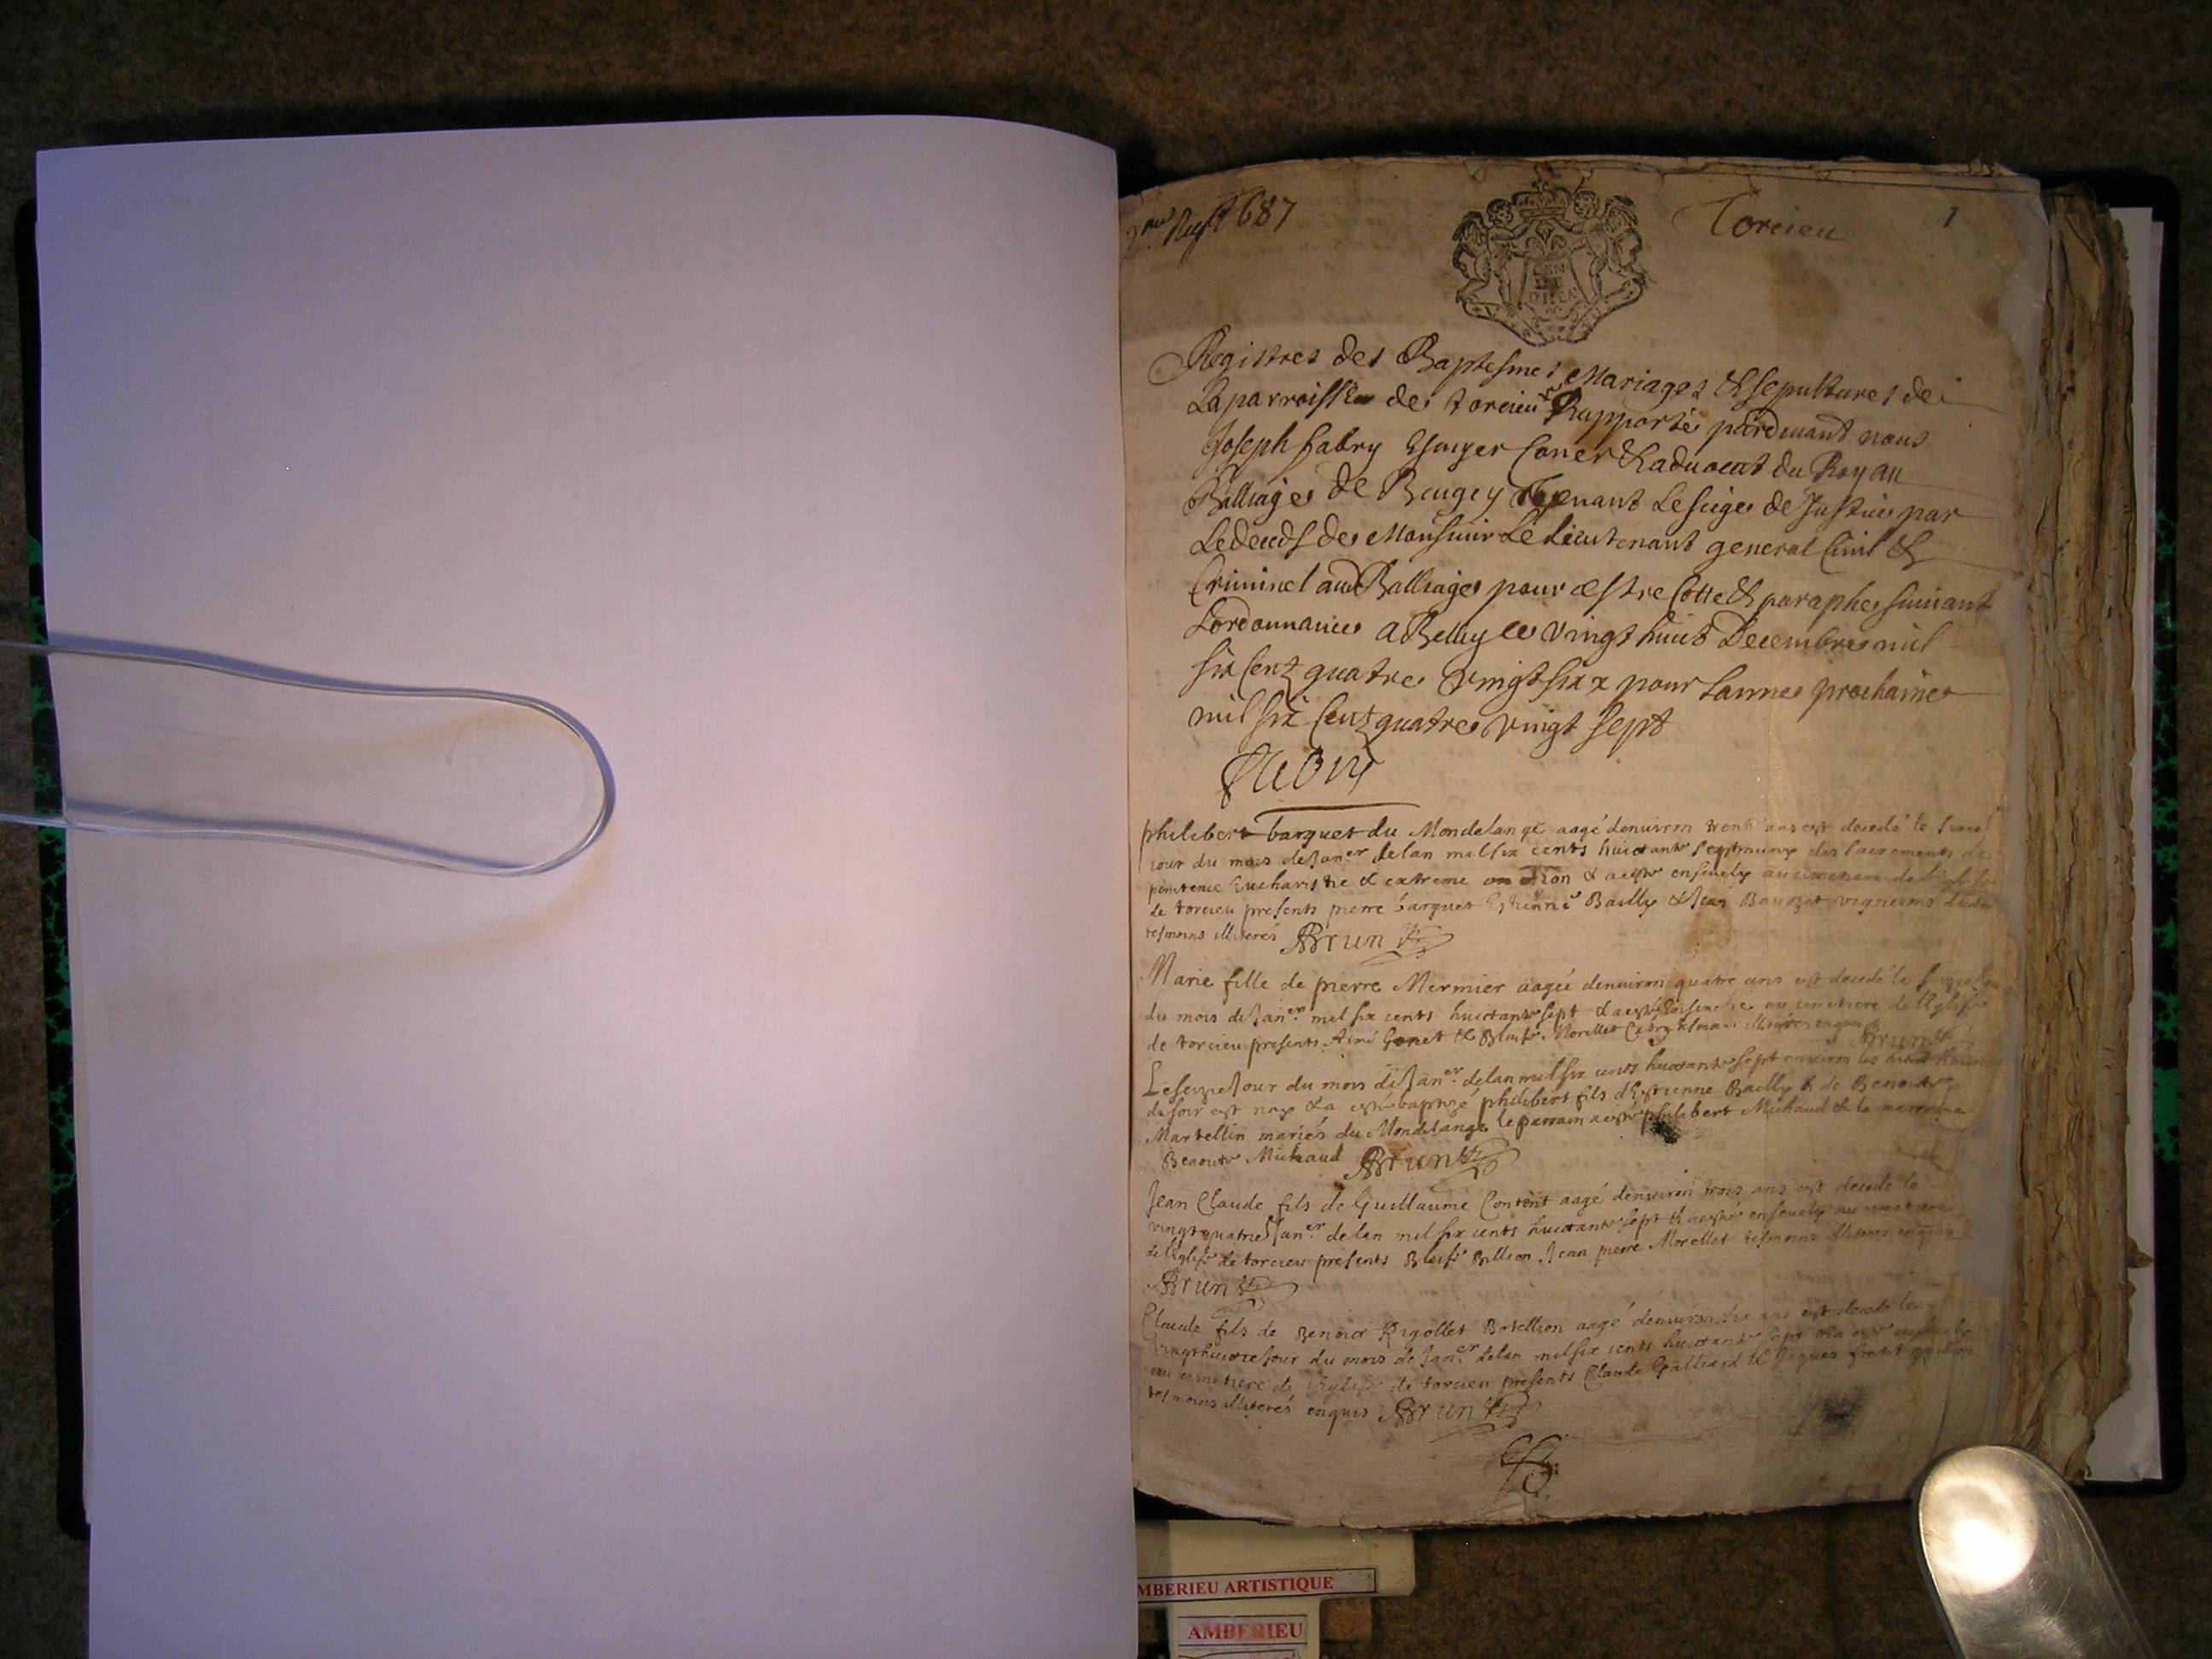 2me Reg 1687
Torcieu
1
GEN
DE LA
Registres des Baptesmes Mariages & sepultures de
La parroisse de torcieu Rapporté pardeuant nous
Joseph fabry Escuyer Coner & aduocat du Roy au
Balliage de Beugey tenant Le siege de Justice par
Le deceds de Monsieur Le Lieutenant general Ciuil &
Criminel aud Balliage pour estre Cotte & paraphe suiuant
Lordonnance a Belley ce vingt huict Decembre mil
six Centz quatre vingt six pour Lannee prochaine
mil six Centz quatre vingt sept
philibert barquet du Mondelange aagé denuiron trente ans est decedé le
iour du mois de Janer de lan mil six cents huictante sept muny des sacrements de
penitence Eucharistie & extreme onction & a esté enseuely au cimetiere de
de torcieu presents pierre barquet Estienne Bailly & Jean vignerons
tesmoins illiterés Brun
Marie fille de pierre Mermier aagée denuiron quatre ans est decedé le
du mois de Janer mil six cents huictante sept & a esté au cimetiere de l'Eglise
de torcieu presents Aimé Gonet & Blaise Morellet illiterés enquis Brun
Le seize Jour du mois de Janer de lan mil six cents huictante sept enuiron les huict heures
du soir est nay & a esté baptizé philibert fils d'Estienne Bailly & de Benoite
Martellin mariés du Mondelange le parrain a esté philibert Michaud & la marraine
Benoite Michaud Brun
Jean Claude fils de Guillaume Content aagé denuiron trois ans est decedé le
vingt quatre Janer de lan mil six cents huictante sept & a esté enseuely au cimetiere
de l'Eglise de torcieu presents Blaise Billion Jean pierre Morellet tesmoins illiterés enquis
Brun
Claude fils de Benoict Rigollet Botellion aagé denuiron six ans est decedé le
vingt huictie Jour du mois de Janer de lan mil six cents huictante sept & a esté enseuely
au cimetiere de l'Eglise de torcieu presents Claude Galliard & Jaques
tesmoins illiterés enquis Brun
MBERIEU ARTISTIQUE
AMBERIEU